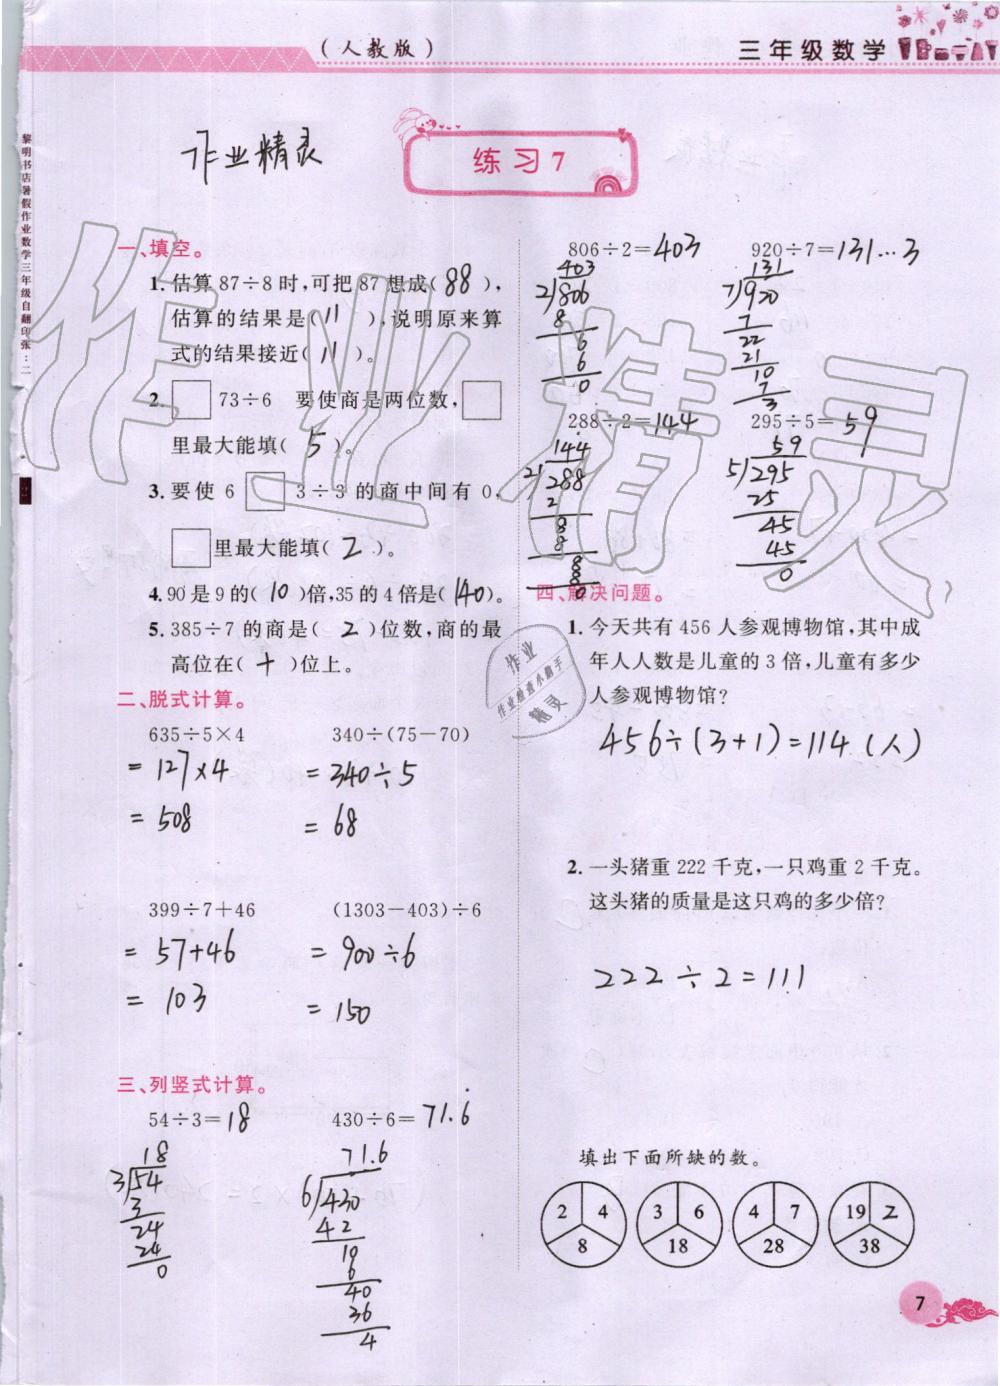 (人教版)
三年级数学
黎明书店暑假作业数学三年级自翻印张:二
作业精灵
练习7
一、填空。
1. 估算87÷8时,可把87想成(88),
估算的结果是(11),说明原来算
式的结果接近(11)。
2. □73÷6 要使商是两位数,□
里最大能填(5)。
3. 要使6□3÷3的商中间有0,
□里最大能填(2)。
4. 90是9的(10)倍,35的4倍是(140)。
5. 385÷7的商是(2)位数,商的最
高位在(十)位上。
二、脱式计算。
635÷5×4 340÷(75-70)
= 127×4 = 340÷5
= 508 = 68
399÷7+46 (1303-403)÷6
= 57+46 = 900÷6
= 103 = 150
三、列竖式计算。
54÷3=18 430÷6=71.6̇
18 71.6
3)54 6)430
3 42
24 10
24 6
0 40
36
4
806÷2=403 920÷7=131…3
403 131
2)806 7)920
8 7
6 22
6 21
0 10
7
3
288÷2=144 295÷5=59
144 59
2)288 5)295
2 25
8 45
8 45
8 0
8
0
四、解决问题。
1. 今天共有456人参观博物馆,其中成
年人人数是儿童的3倍,儿童有多少
人参观博物馆?
456÷(3+1)=114(人)
2. 一头猪重222千克,一只鸡重2千克。
这头猪的质量是这只鸡的多少倍?
222÷2=111
填出下面所缺的数。
2 4 3 6 4 7 19 2
8 18 28 38
7
作业精灵
作业
作业检查小助手
精灵